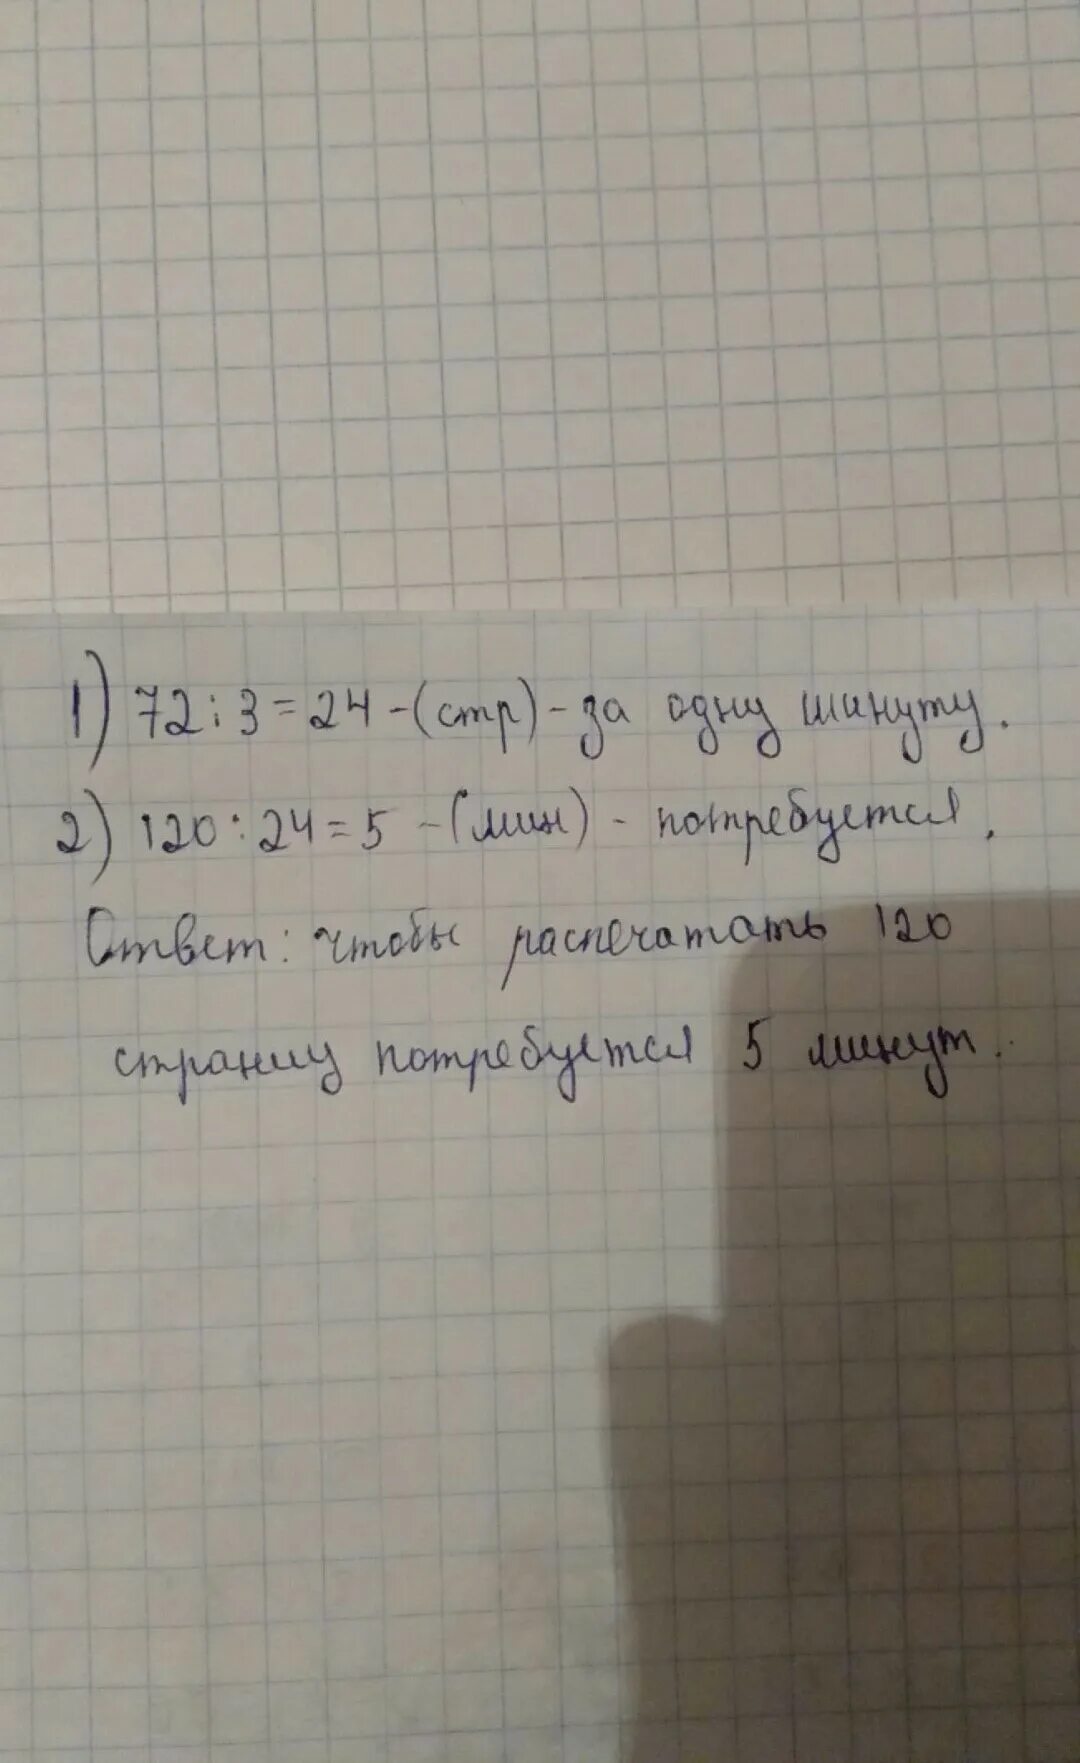 1) 72 : 3 = 24 - (стр) - за одну минуту.
2) 120 : 24 = 5 - (мин) - потребуется.
Ответ: чтобы распечатать 120
страниц потребуется 5 минут.